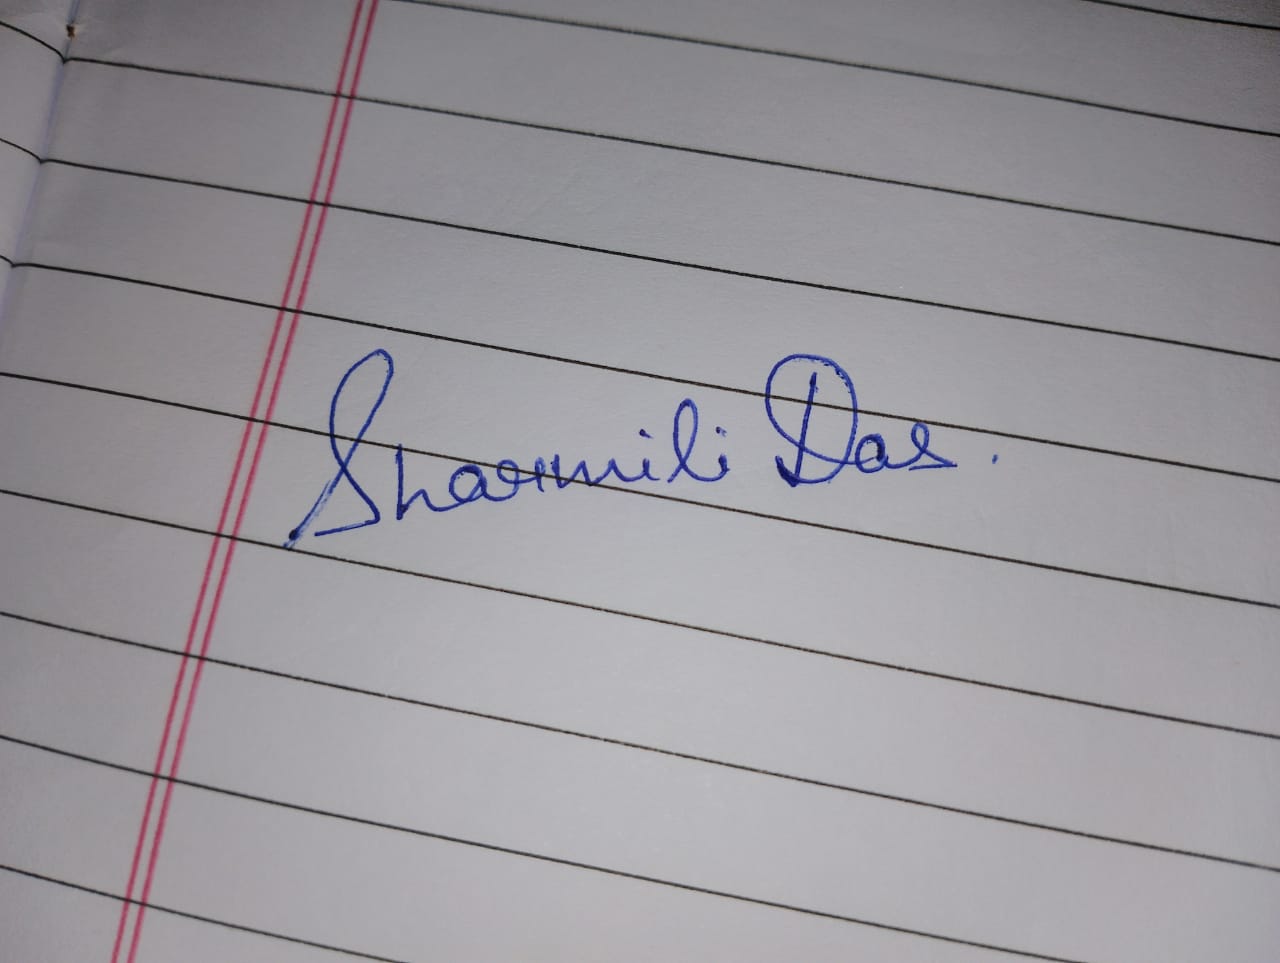 Sharmili Das.